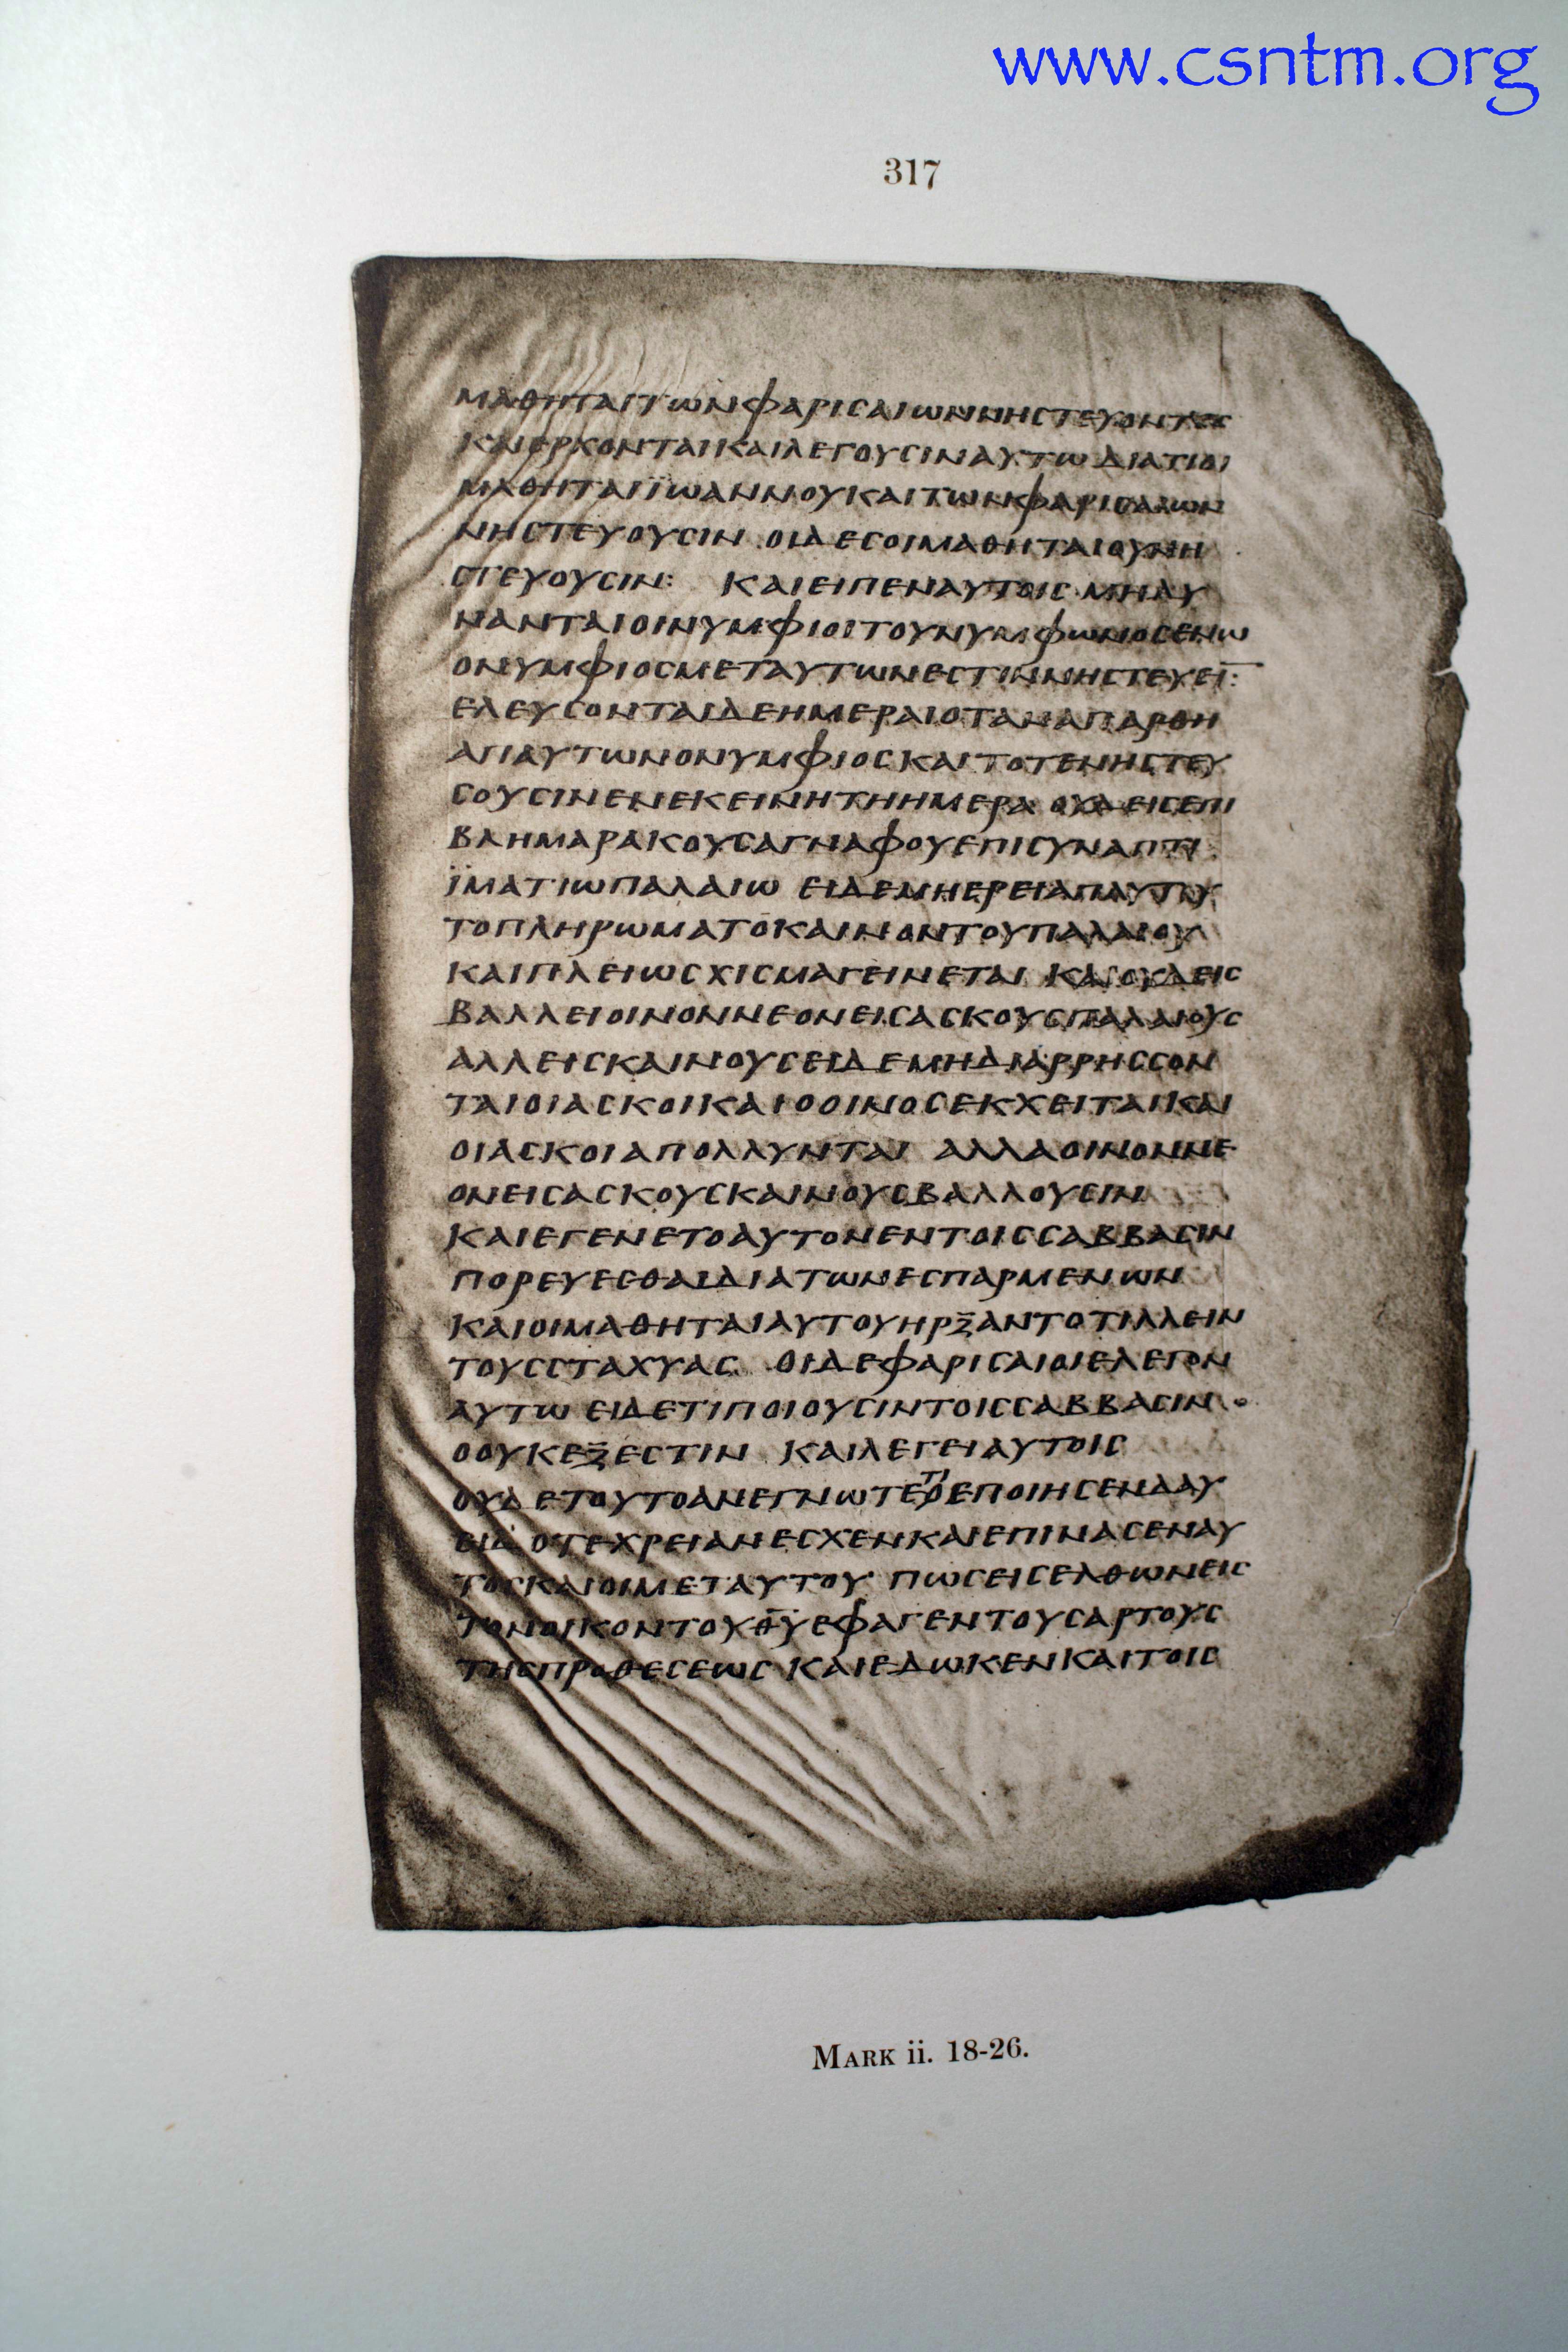 www.csntm.org
317
ΜΑΘΗΤΑΙΤΩΝΦΑΡΙCΑΙΩΝΝΗCΤΕΥΟΝΤΕC
ΚΑΙΕΡΧΟΝΤΑΙΚΑΙΛΕΓΟΥCΙΝΑΥΤΩ ΔΙΑΤΙΟΙ
ΜΑΘΗΤΑΙΪΩΑΝΝΟΥΚΑΙΤΩΝΦΑΡΙCΑΙΩΝ
ΝΗCΤΕΥΟΥCΙΝ ΟΙΔΕCΟΙΜΑΘΗΤΑΙΟΥΝΗ
CΤΕΥΟΥCΙΝ: ΚΑΙΕΙΠΕΝΑΥΤΟΙC ΜΗΔΥ
ΝΑΝΤΑΙΟΙΝΥΜΦΙΟΙΤΟΥΝΥΜΦΩΝΟCΕΝΩ
ΟΝΥΜΦΙΟCΜΕΤΑΥΤΩΝΕCΤΙΝΝΗCΤΕΥΕΙ̅:
ΕΛΕΥCΟΝΤΑΙΔΕΗΜΕΡΑΙΟΤΑΝΑΠΑΡΘΗ
ΑΠΑΥΤΩΝΟΝΥΜΦΙΟCΚΑΙΤΟΤΕΝΗCΤΕΥ
CΟΥCΙΝΕΝΕΚΕΙΝΗΤΗΗΜΕΡΑ ΟΥΔΕΙCΕΠΙ
ΒΛΗΜΑΡΑΚΟΥCΑΓΝΑΦΟΥΕΠΙCΥΝΑΠΤΕΙ
ΪΜΑΤΙΩΠΑΛΑΙΩ ΕΙΔΕΜΗΕΡΕΙΑΠΑΥΤΟΥ
ΤΟΠΛΗΡΩΜΑΤΟΚΑΙΝΟΝΤΟΥΠΑΛΑΙΟΥ
ΚΑΙΠΛΕΙΩCΧΙCΜΑΓΕΙΝΕΤΑΙ ΚΑΙΟΥΔΕΙC
ΒΑΛΛΕΙΟΙΝΟΝΝΕΟΝΕΙCΑCΚΟΥCΠΑΛΑΙΟΥC
ΑΛΛΕΙCΚΑΙΝΟΥCΕΙΔΕΜΗΔΙΑΡΡΗCCΟΝ
ΤΑΙΟΙΑCΚΟΙΚΑΙΟΟΙΝΟCΕΚΧΕΙΤΑΙΚΑΙ
ΟΙΑCΚΟΙΑΠΟΛΛΥΝΤΑΙ ΑΛΛΑΟΙΝΟΝΝΕ
ΟΝΕΙCΑCΚΟΥCΚΑΙΝΟΥCΒΑΛΛΟΥCΙΝ
ΚΑΙΕΓΕΝΕΤΟΑΥΤΟΝΕΝΤΟΙCCΑΒΒΑCΙΝ
ΠΟΡΕΥΕCΘΑΙΔΙΑΤΩΝΕCΠΑΡΜΕΝΩΝ
ΚΑΙΟΙΜΑΘΗΤΑΙΑΥΤΟΥΗΡΞΑΝΤΟΤΙΛΛΕΙΝ
ΤΟΥCCΤΑΧΥΑC ΟΙΔΕΦΑΡΙCΑΙΟΙΕΛΕΓΟΝ
ΑΥΤΩ ΕΙΔΕΤΙΠΟΙΟΥCΙΝΤΟΙCCΑΒΒΑCΙΝ
ΟΟΥΚΕΞΕCΤΙΝ ΚΑΙΛΕΓΕΙΑΥΤΟΙC
ΟΥΔΕΤΟΥΤΟΑΝΕΓΝΩΤΕΟΕΠΟΙΗCΕΝΔΑΥ
ΕΙΔ ΟΤΕΧΡΕΙΑΝΕCΧΕΝΚΑΙΕΠΙΝΑCΕΝΑΥ
ΤΟCΚΑΙΟΙΜΕΤΑΥΤΟΥ ΠΩCΕΙCΕΛΘΩΝΕΙC
ΤΟΝΟΙΚΟΝΤΟΥΘ̅Υ̅ΕΦΑΓΕΝΤΟΥCΑΡΤΟΥC
ΤΗCΠΡΟΘΕCΕΩC ΚΑΙΕΔΩΚΕΝΚΑΙΤΟΙC
MARK ii. 18-26.